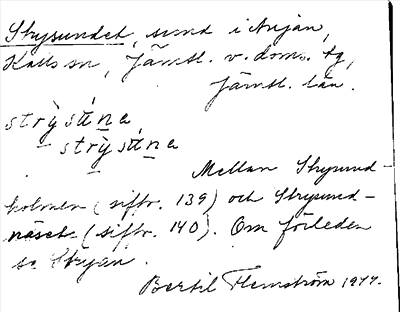 Strysundet, sund i Anjan,
Kalls sn, Jämtl. v. doms. tg,
Jämtl. län.
strỳsúna
strỳsúna
Mellan Strysund-
holmen (siffr. 139) och Strysund-
näset (siffr. 140). Om förleden
se Stryan.
Bertil Flemström 1944.